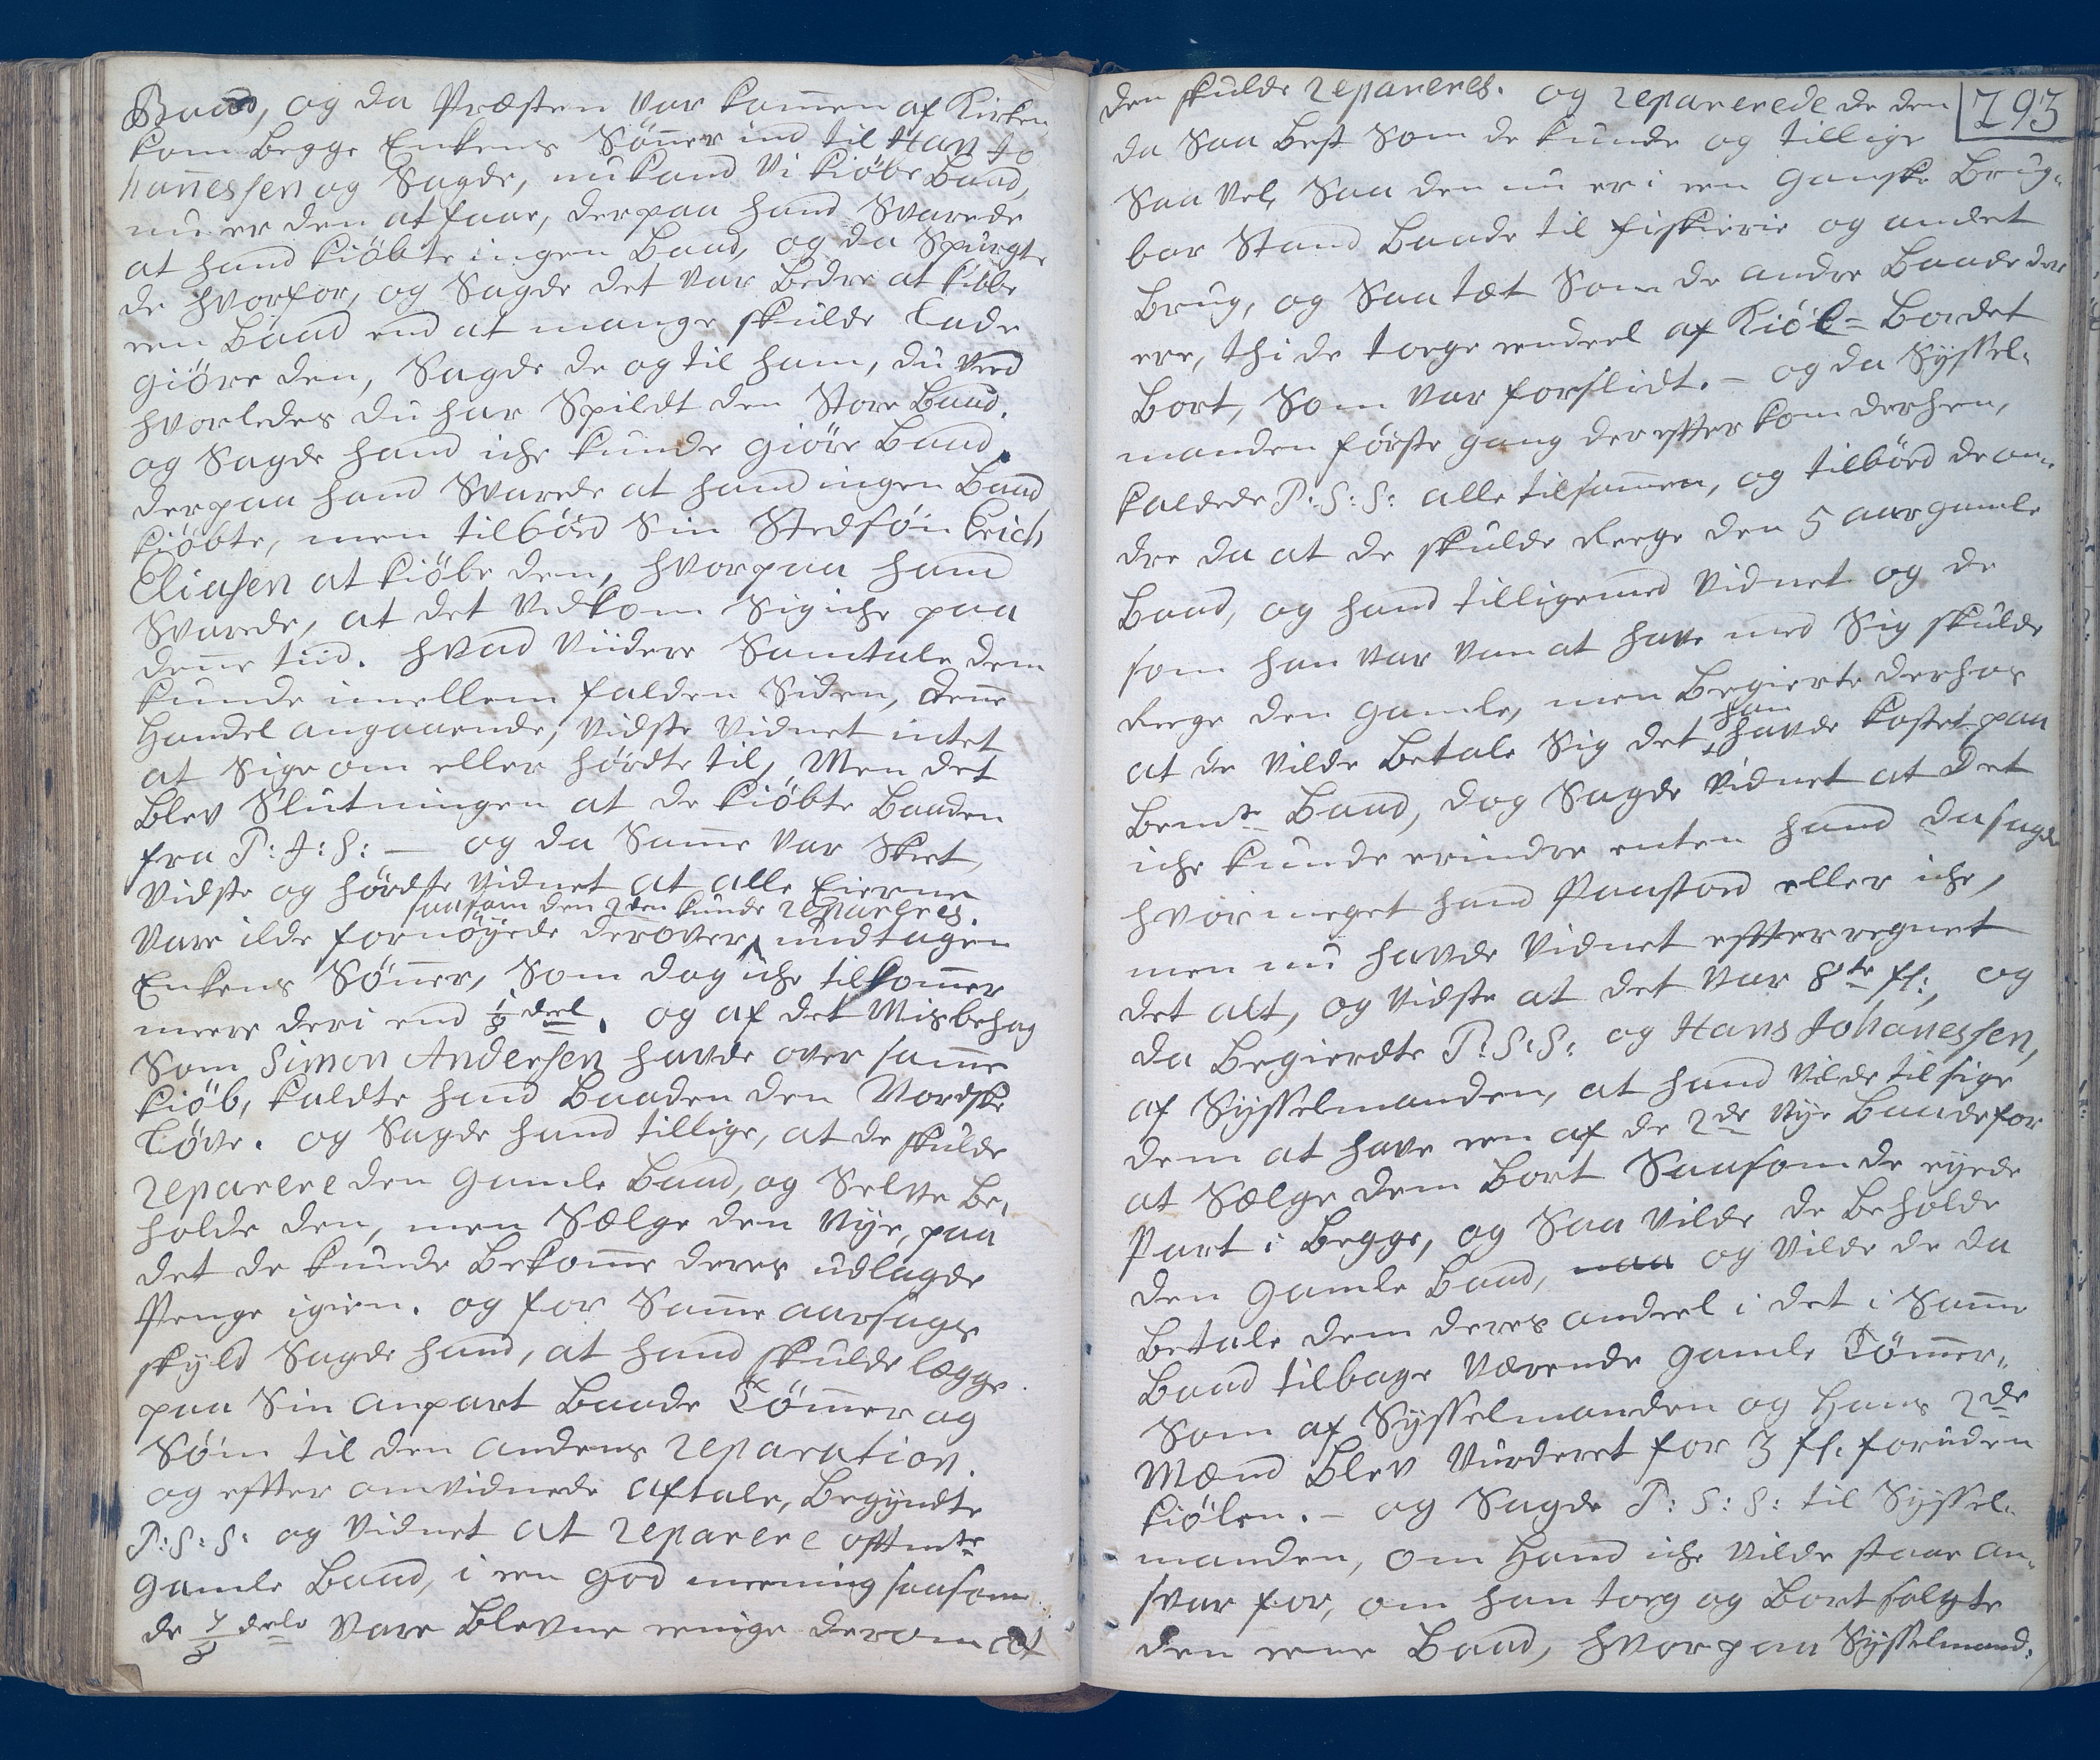 Baad, og da Præsten var kommen af Kirken
kom begge Enkens Sönner ind til Hans Jo
hannessen og Sagde, nu kand Vi kiöbe Baad,
nu er den at faae, derpaa hand Svarede
at hand kiöbte ingen Baad, og da Spurgte
de hvorfor, og Sagde det var bedre at kiöbe
een Baad end at mange skulde lade
giöre den, Sagde de og til ham, du veed
hvorledes du har Spildt den Store Baad,
og Sagde hand iche kunde giöre Baad,
derpaa hand Svarede at hand ingen Baad
kiöbte, men tilböd Sin Stedsön Erich
Eliasen at kiöbe den, hvorpaa hand
Svarede, at det vedkom Sig iche paa
denne tiid. hvad Viidere Samtale dem
kunde imellem falden Siden, denne
Handel angaaende, vidste Vidnet intet
at Sige om eller hördte til, Men det
blev Slutningen at de kiöbte Baaden
fra P: J: S: — og da Samme var Skeet,
vidste og hördte Vidnet at alle Eierne
saasom den 2den kunde repareres.
vare ilde fornöyede derover, undtagen
Enkens Sönner, Som dog iche tilkommer
meere deri end 1/8 deel. og af det Misbehag
Som Simon Andersen havde over samme
kiöb, kaldte hand Baaden den Nordske
Löve. og Sagde hand tillige, at de skulde
reparere den gamle Baad, og Selve be„
holde den, men Sælge den Nye, paa
det de kunde bekomme deres udlagde
Penge igien. og for Samme aarsags
skyld Sagde hand, at hand skulde lægge
paa Sin anpart baade Tömmer og
Söm til den andens reparation.
og effter omvidnede aftale, begyndte
P: S: S: og Vidnet at reparere offtmte
gamle Baad, i een god meening saasom
de 7/8 dele vare blevne eenige derom at
793
den skulde repareres. og reparerede de den
da Saa best Som de kunde og tillige
Saa vel, Saa den nu er i een ganske brug„
bar Stand baade til fiskerie og andet
brug, og Saa tæt Som de andre Baade der
ere, thi de toege eendeel af Kiöl= Bordet
bort, Som var forslidt. — og da Syssel„
manden förste gang dereffter kom derhen,
kaldede P: S: S: alle tilsammen, og tilböed de an„
dre da at de skulde eege den 5 aar gamle
Baad, og hand tilligemed Vidnet og de
som han var van at have med Sig skulde
eege den gamle, men begierte derhos
at de vilde betale Sig det han havde kostet paa
bemte Baad, dog Sagde Vidnet at det
iche kunde erindre enten hand da sagde
hvor meget hand Paastoed eller iche,
men nu havde Vidnet effterregnet
det alt, og vidste at det var 8te fl:, og
da begierdte P: S: S: og Hans Johanessen,
af Sysselmanden, at hand vilde tilsige
dem at have een af de 2de Nye Baade for
at Sælge dem bort Saasom de eyede
Part i begge, og Saa vilde de beholde
den gamle Baad, og vilde de da
betale dem deres andeel i det i Samme
Baad tilbage værende gamle Tömmer,
Som af Sysselmanden og Hans 2de
Mænd blev vurderet for 3 fl: foruden
kiölen. — og Sagde P: S: S: til Syssel„
manden, om Hand iche vilde staae an„
svar for, om han toeg og bort solgte
den eene Baad, hvorpaa Sysselmand: